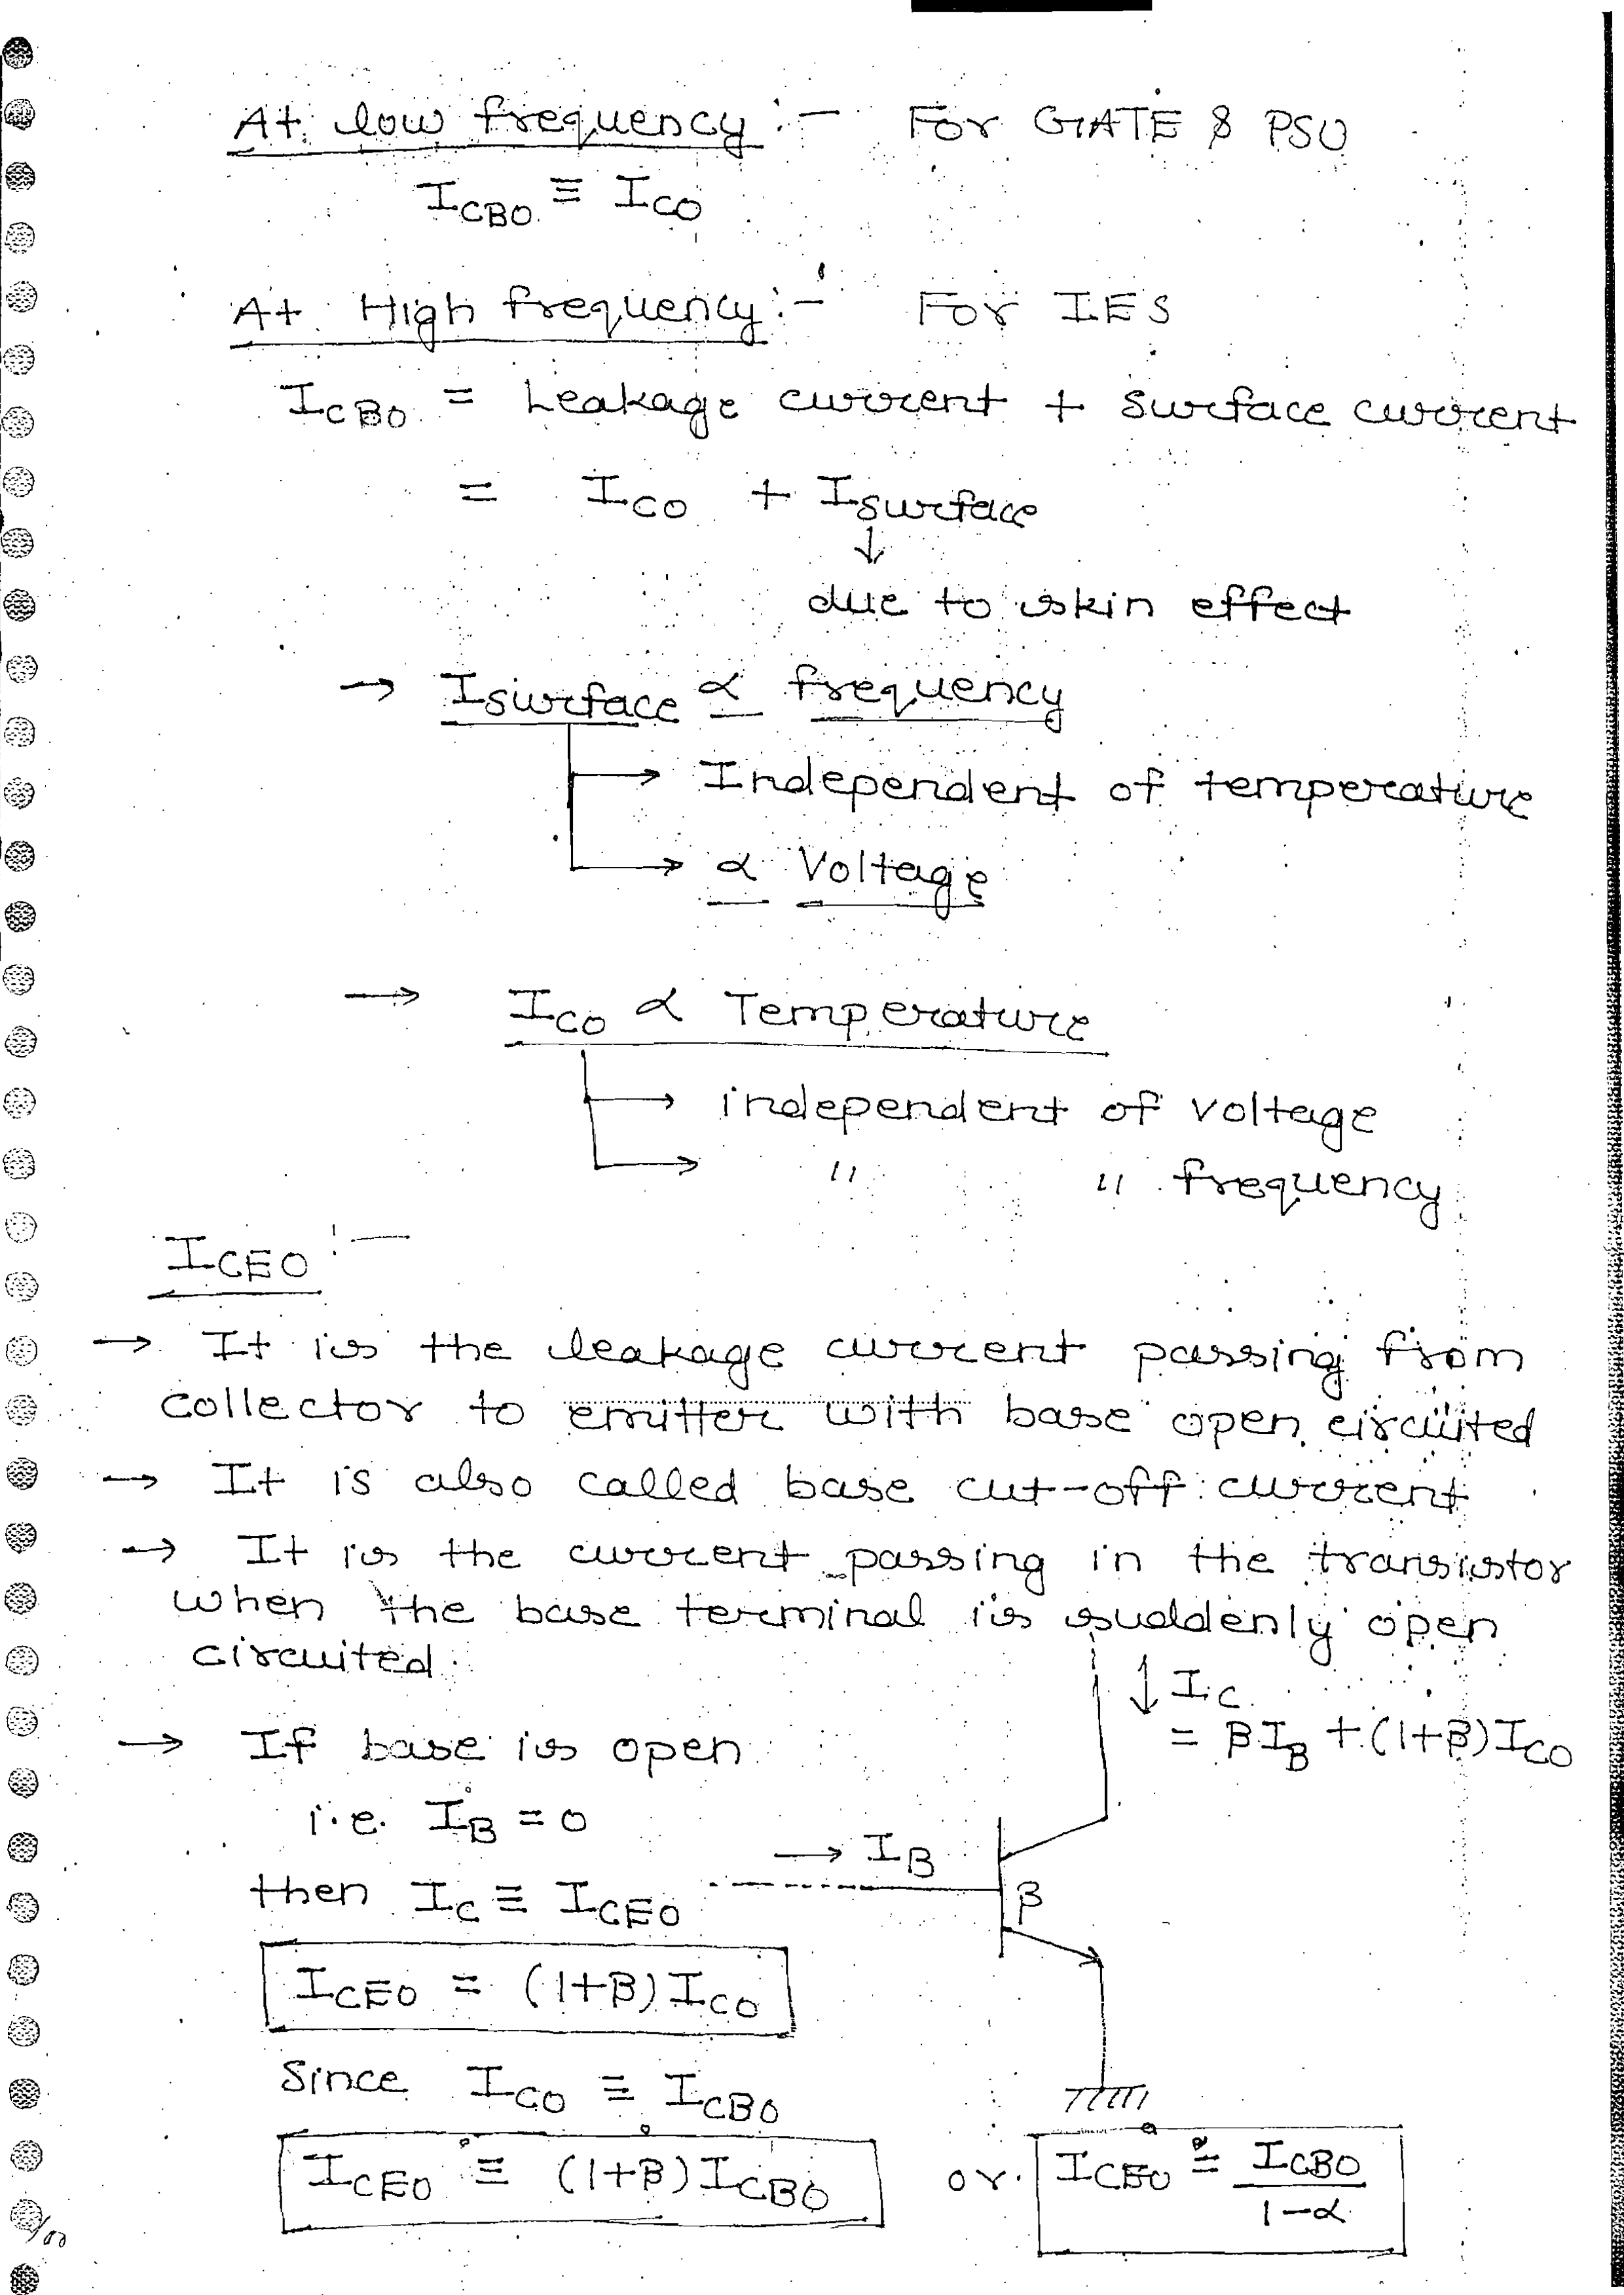 At low frequency :- For GATE & PSU
I_CBO ≡ I_CO
At High frequency :- For IES
I_CBO = Leakage current + surface current
= I_CO + I_surface
↓
due to skin effect
→ I_surface ∝ frequency
→ Independent of temperature
→ ∝ Voltage
→ I_CO ∝ Temperature
→ independent of voltage
→ " " frequency
I_CEO :-
→ It is the leakage current passing from
collector to emitter with base open circuited
→ It is also called base cut-off current
→ It is the current passing in the transistor
when the base terminal is suddenly open
circuited.
↓ I_C
= βI_B + (1+β)I_CO
→ If base is open
i.e. I_B = 0
→ I_B
β
then I_C ≡ I_CEO
I_CEO = (1+β) I_CO
Since I_CO ≡ I_CBO
I_CEO ≡ (1+β) I_CBO or I_CEO ≡ I_CBO / 1-α